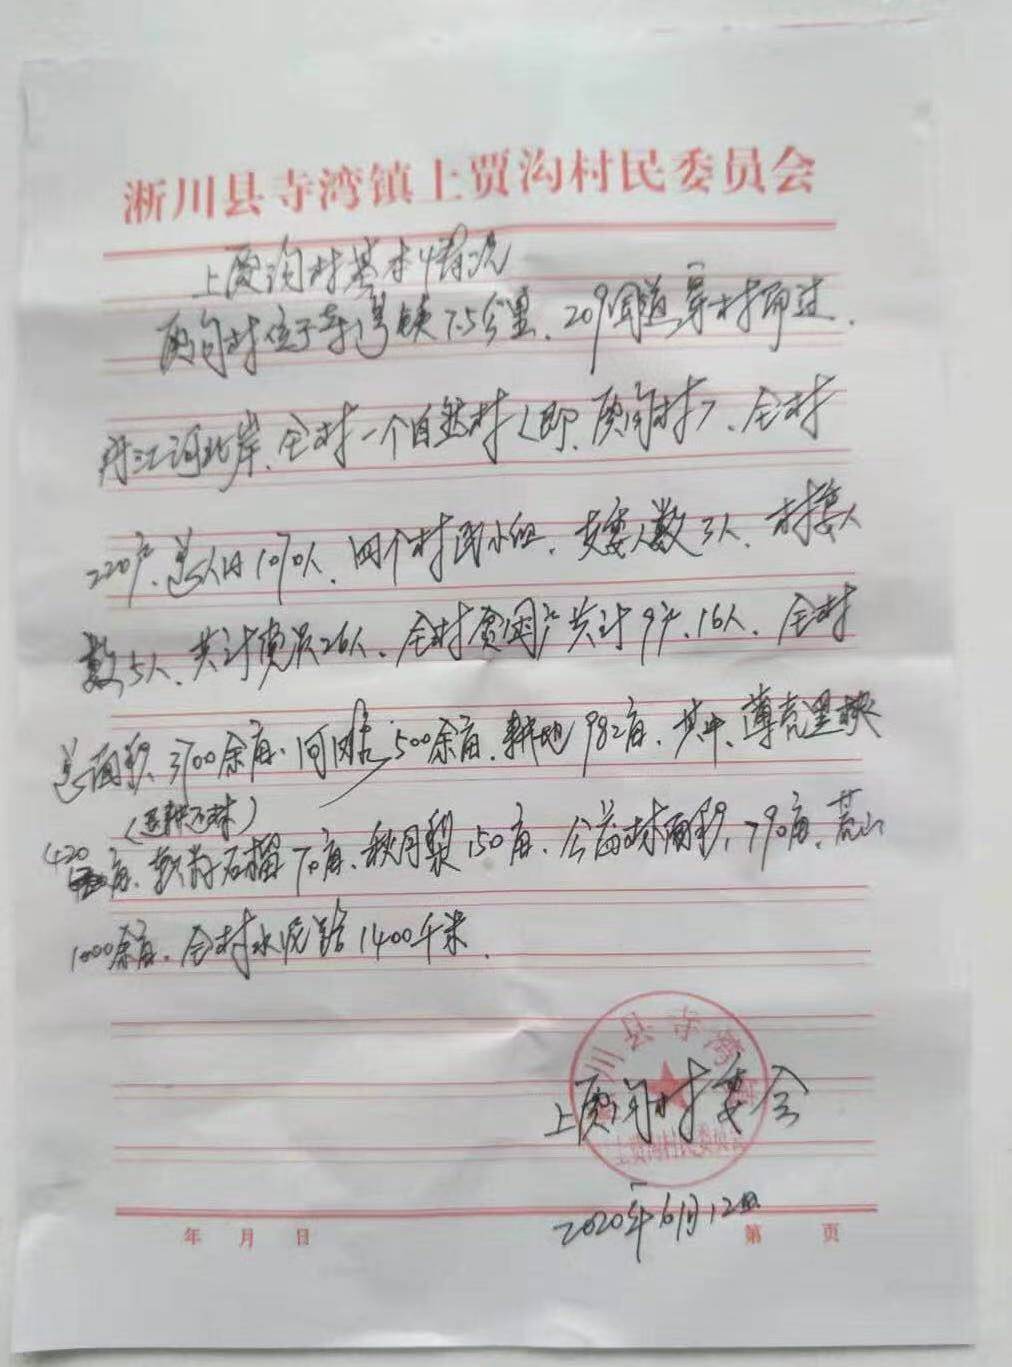 淅川县寺湾镇上贾沟村民委员会
上贾沟村基本情况
贾沟村位于寺湾镇7.5公里、209国道穿村而过、
丹江河北岸、全村一个自然村（即、贾沟村）、全村
220户、总人口1070人、四个村民小组、支委人数3人、村委人
数5人、共计党员26人、全村贫困户共计9户、16人、全村
总面积、3700余亩、河 500余亩、耕地982亩、其中、薄壳里核
（退耕还林）
420亩、软籽石榴70亩、秋月梨150亩、公益林面积、790亩、荒山
1000余亩、全村水泥路1400千米、
川县寺湾
上贾沟村委会
上贾沟村民委员会
2020年6月12日
年 月 日 第 页